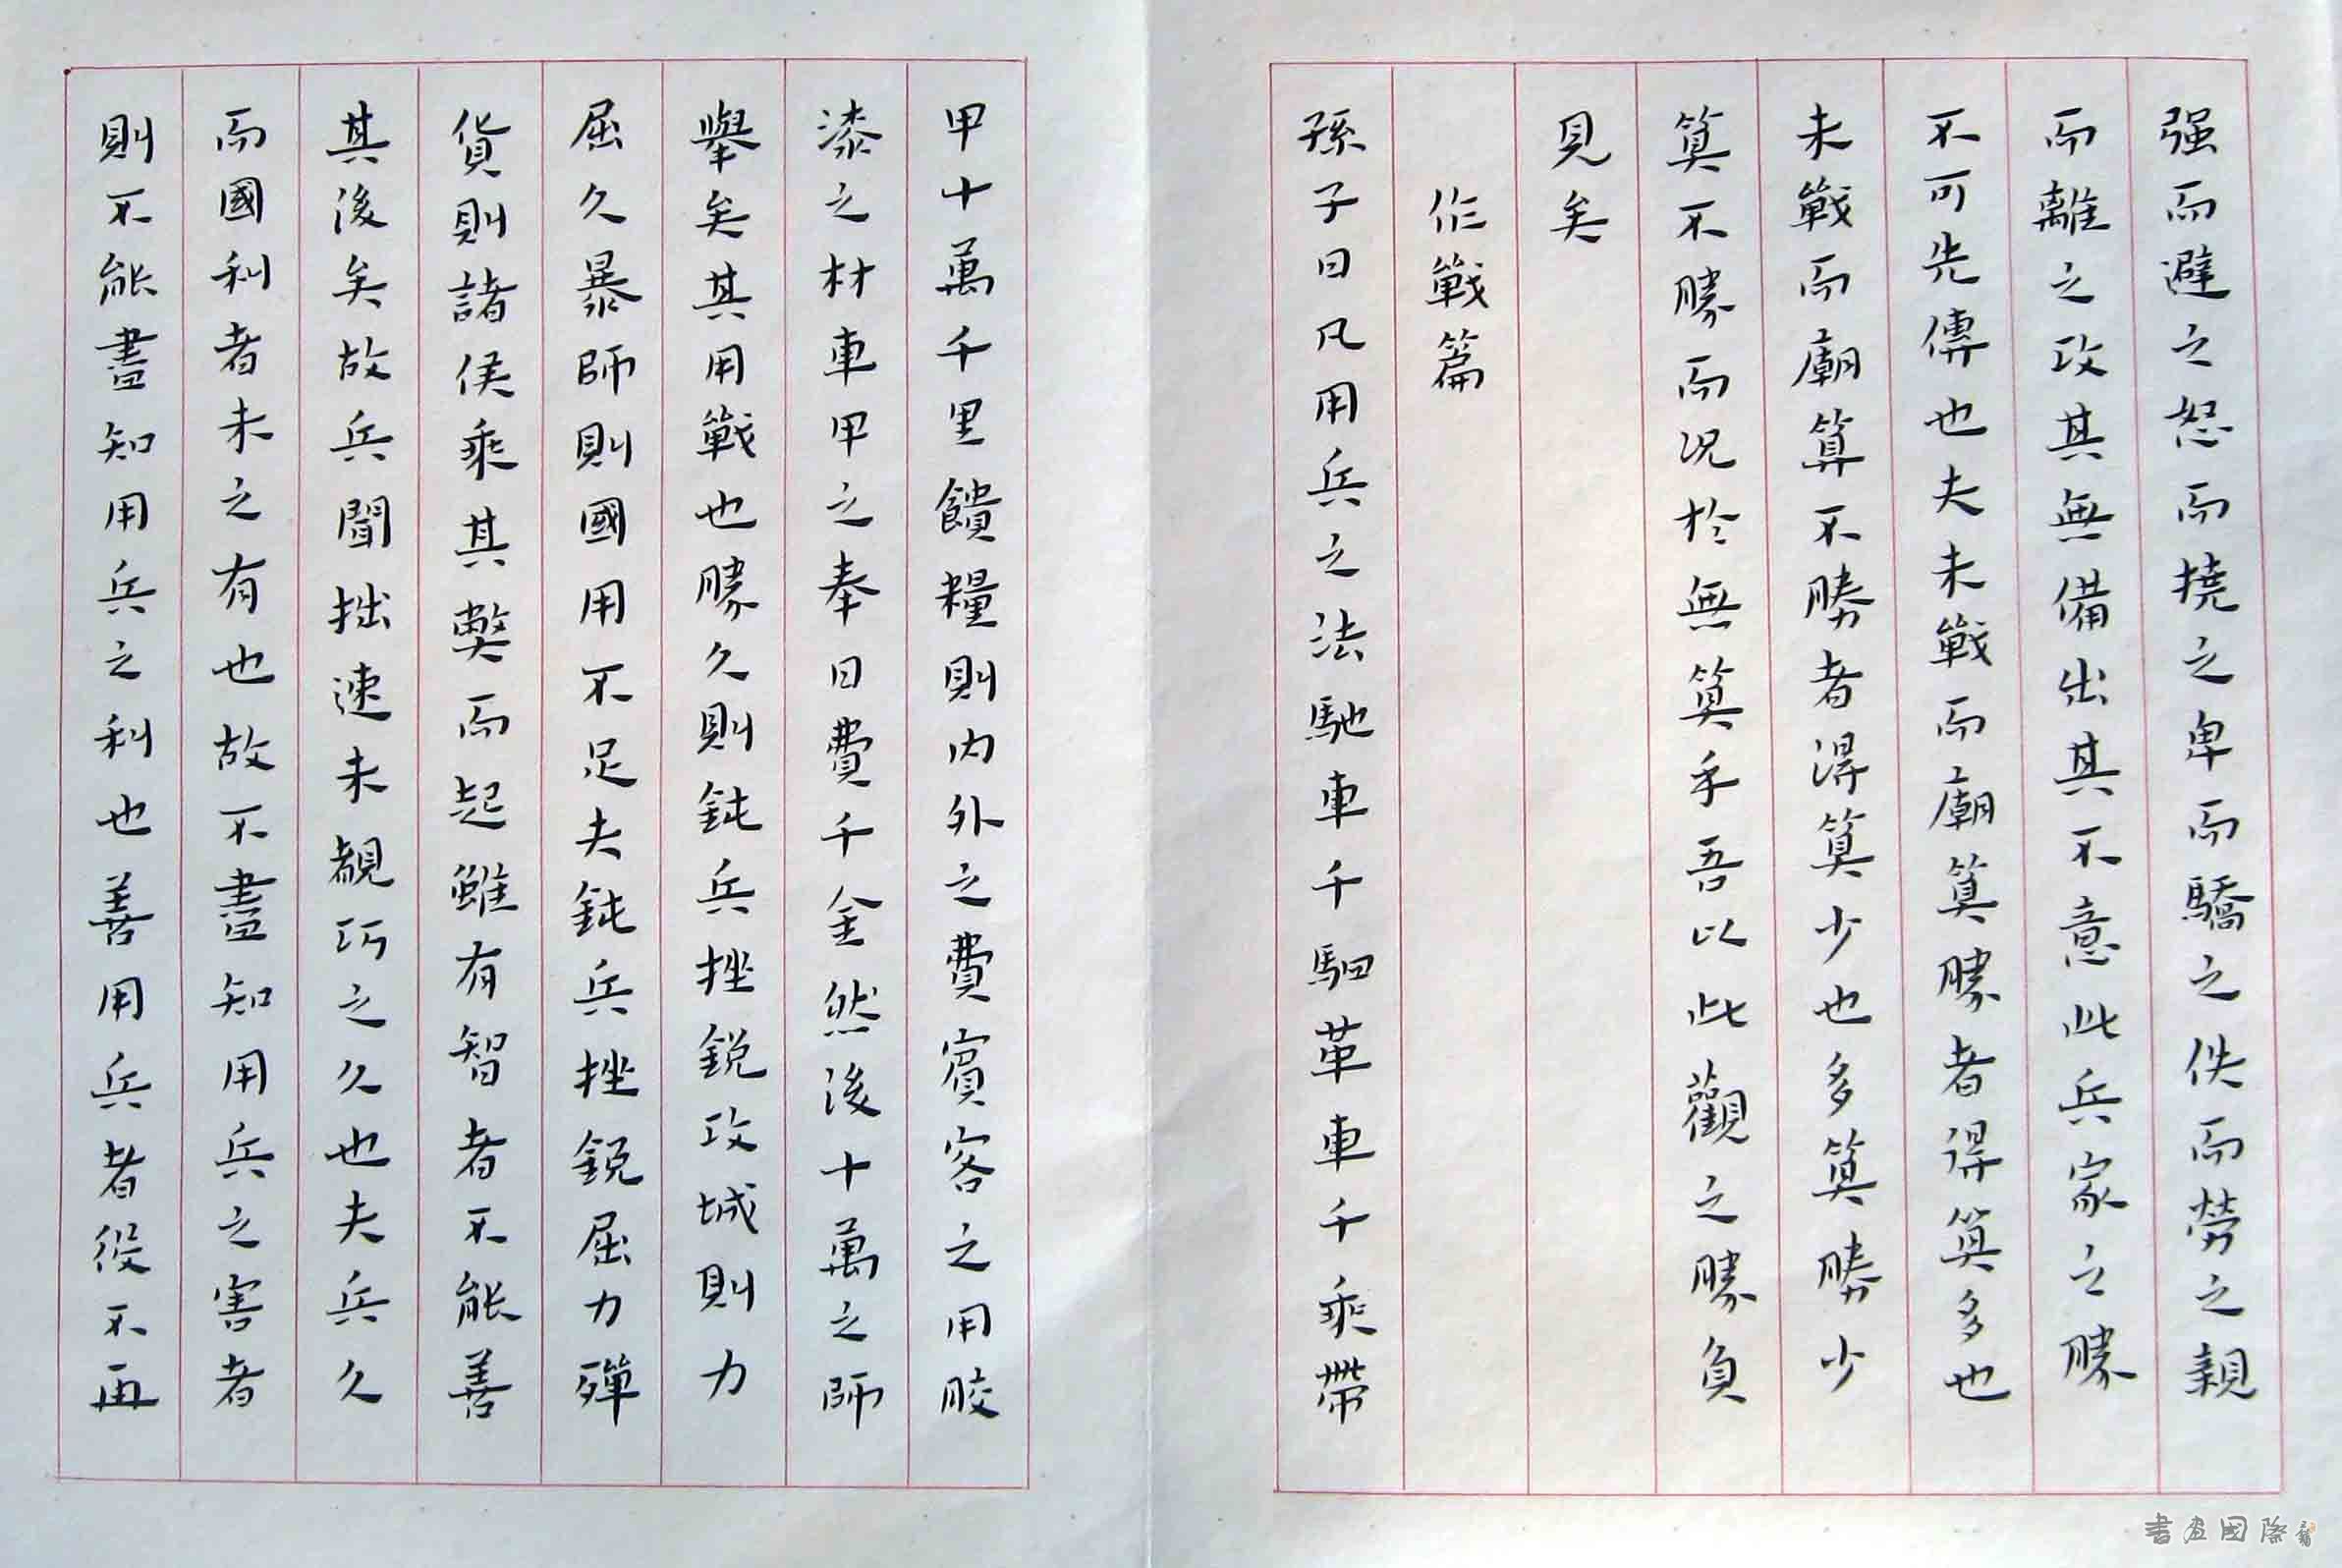 强而避之怒而撓之卑而驕之佚而勞之親
而離之攻其無備出其不意此兵家之勝
不可先傳也夫未戰而廟算勝者得算多也
未戰而廟算不勝者得算少也多算勝少
算不勝而況於無算乎吾以此觀之勝負
見矣
作戰篇
孫子曰凡用兵之法馳車千駟革車千乘帶
甲十萬千里饋糧則内外之費賓客之用膠
漆之材車甲之奉日費千金然後十萬之師
舉矣其用戰也勝久則鈍兵挫鋭攻城則力
屈久暴師則國用不足夫鈍兵挫鋭屈力殫
貨則諸侯乘其獘而起雖有智者不能善
其後矣故兵聞拙速未覩巧之久也夫兵久
而國利者未之有也故不盡知用兵之害者
則不能盡知用兵之利也善用兵者役不再
書画國際